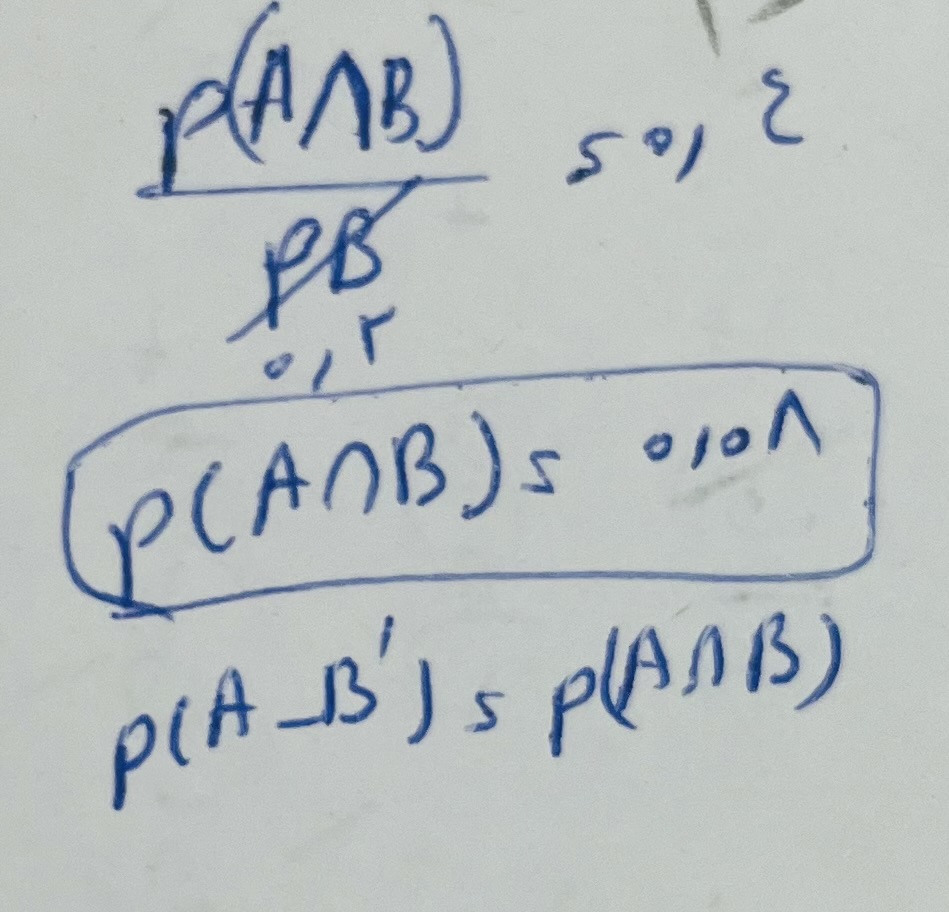 P(A∩B) = ٠,٤
PB
٠,٢
P(A∩B) = ٠,٠٨
P(A-B') = P(A∩B)